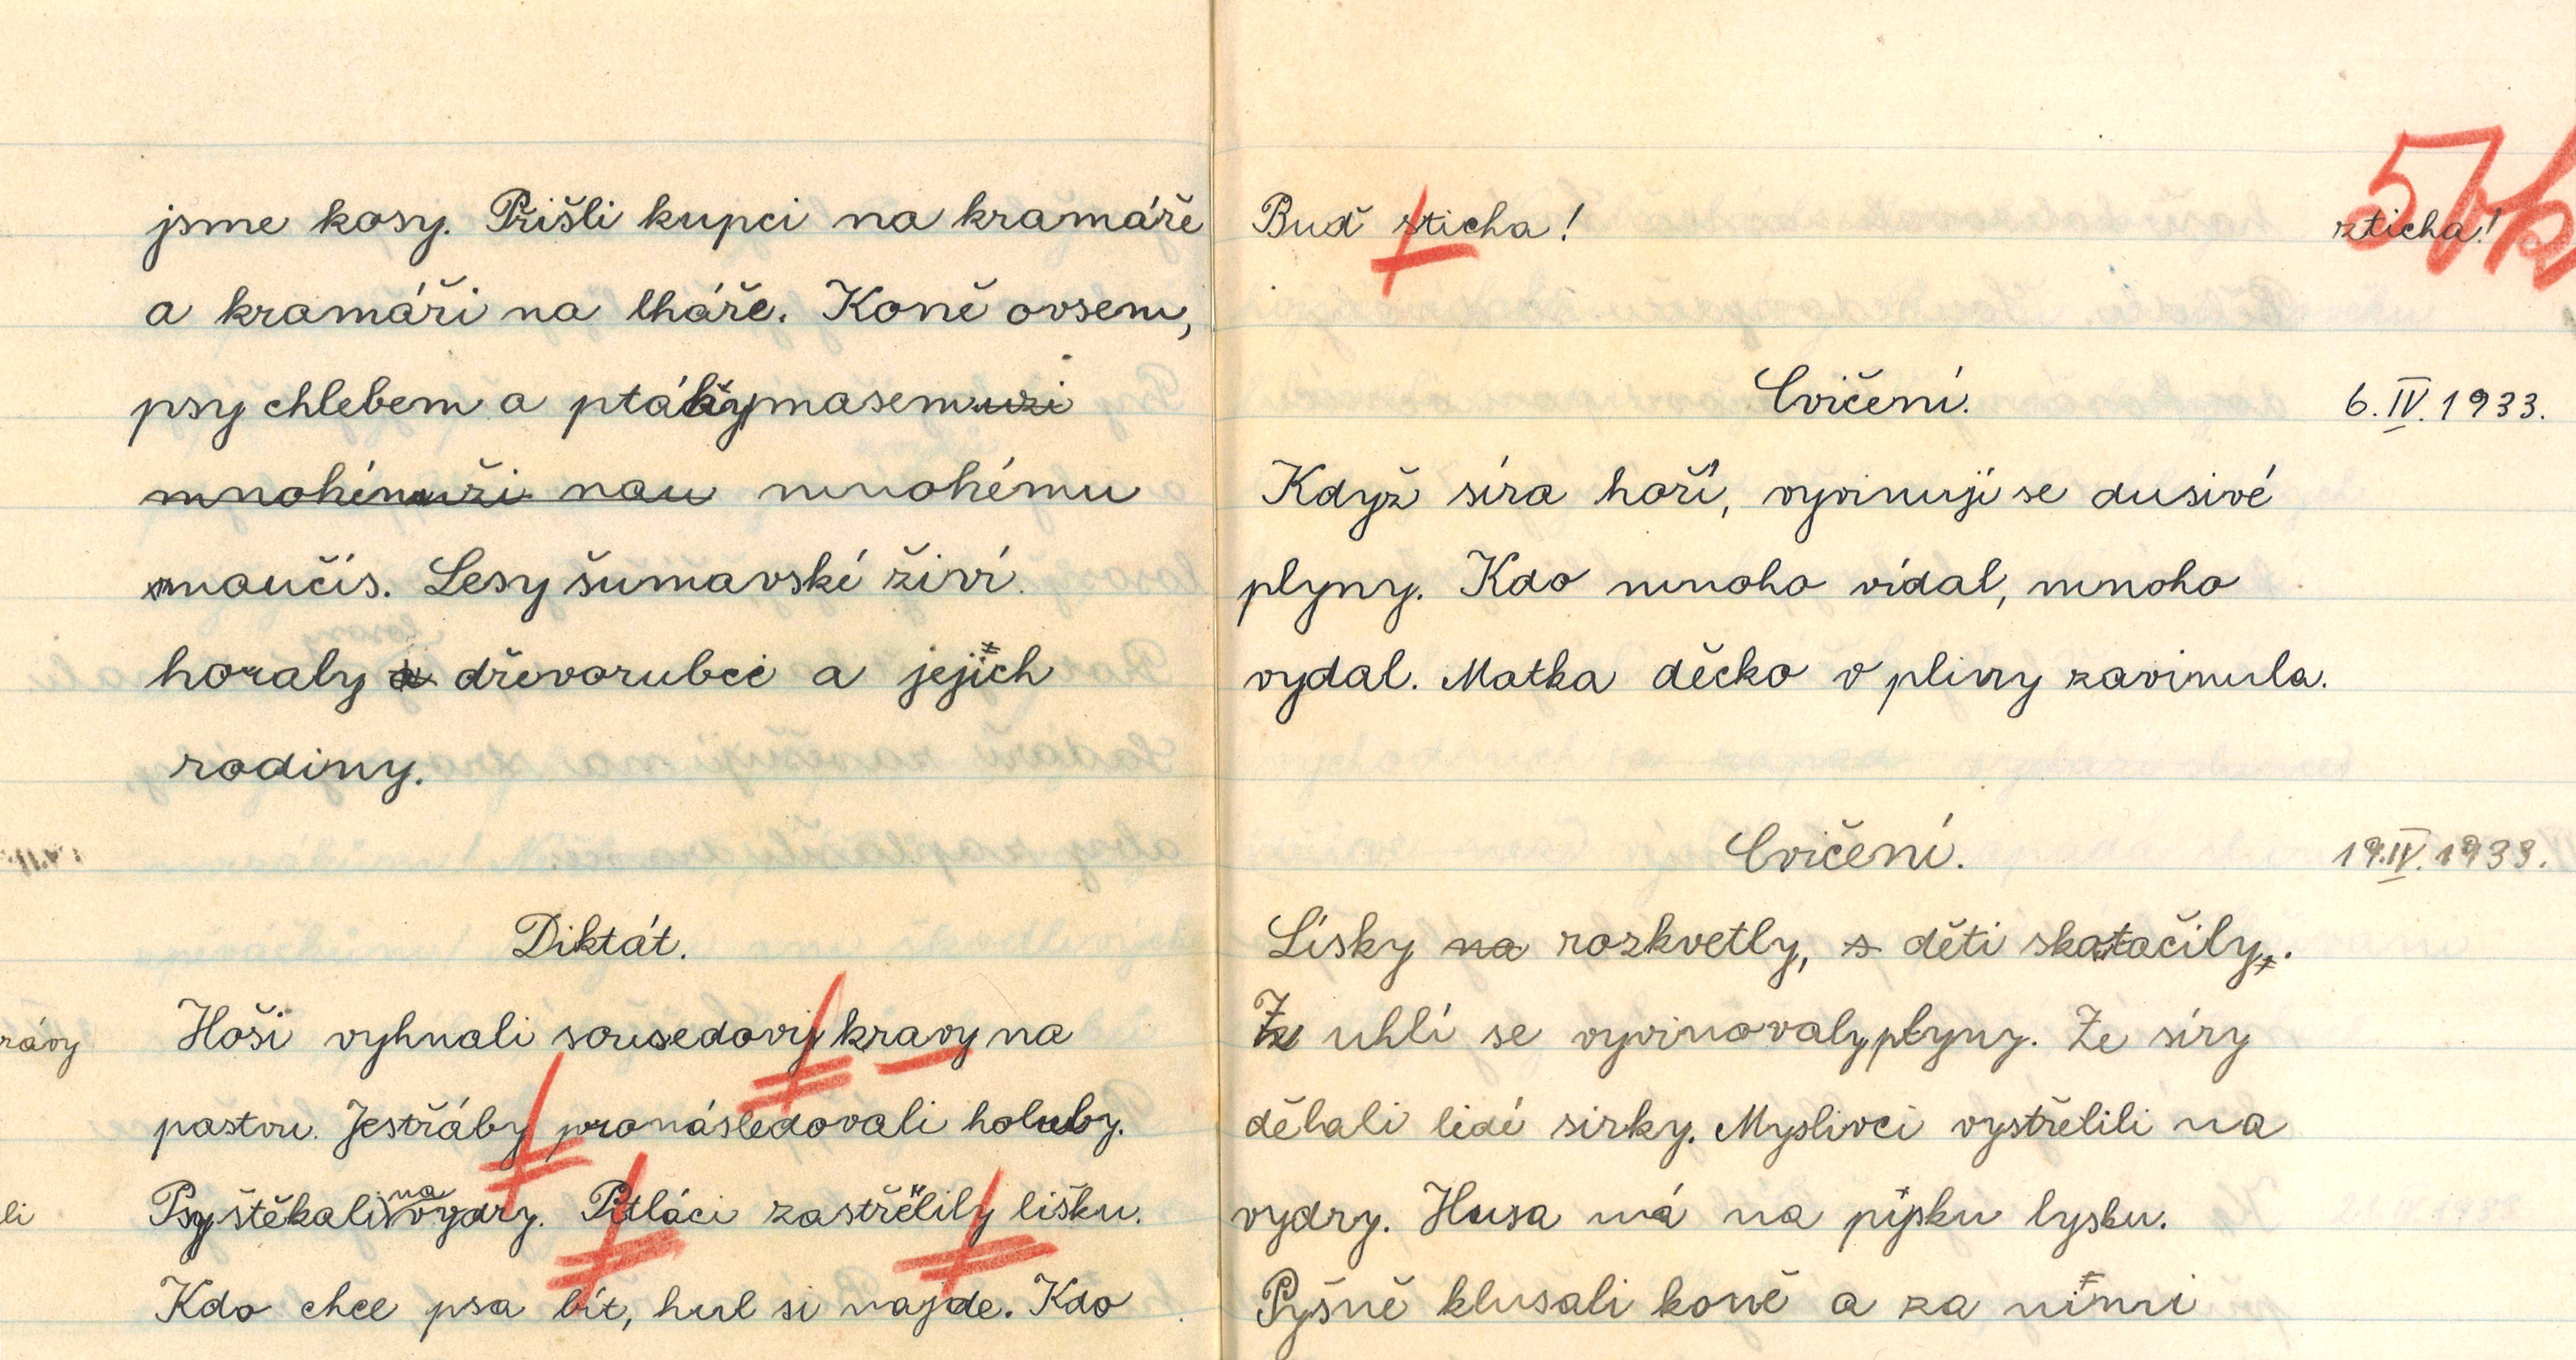 jsme kosy. Přišli kupci na kramáře
a kramáři na lháře. Koně ovsem,
psy chlebem a ptáky masem
mnohému
naučíš. Lesy šumavské živí
horaly dřevorubce a jejich
rodiny.
Diktát.
Hoši vyhnali sousedovy kravy na
rávy
pastvu. Jestřáby pronásledovali holuby.
Psy štěkali na vydry. Pitláci zastřelily lišku.
li
Kdo chce psa bít, hul si najde. Kdo
Buď sticha!
zticha!
5 tk
Cvičení.
6. IV. 1933.
Když síra hoří, vyvinují se dusivé
plyny. Kdo mnoho vídal, mnoho
vydal. Matka děcko v pliny zavinula.
Cvičení.
19. IV. 1933.
Lísky na rozkvetly, s děti skotačily.
Ze uhlí se vyvinovaly plyny. Ze síry
dělali lidé sirky. Myslivci vystřelili na
vydry. Husa má na pysku lysku.
Pyšně klusali koně a za nimi